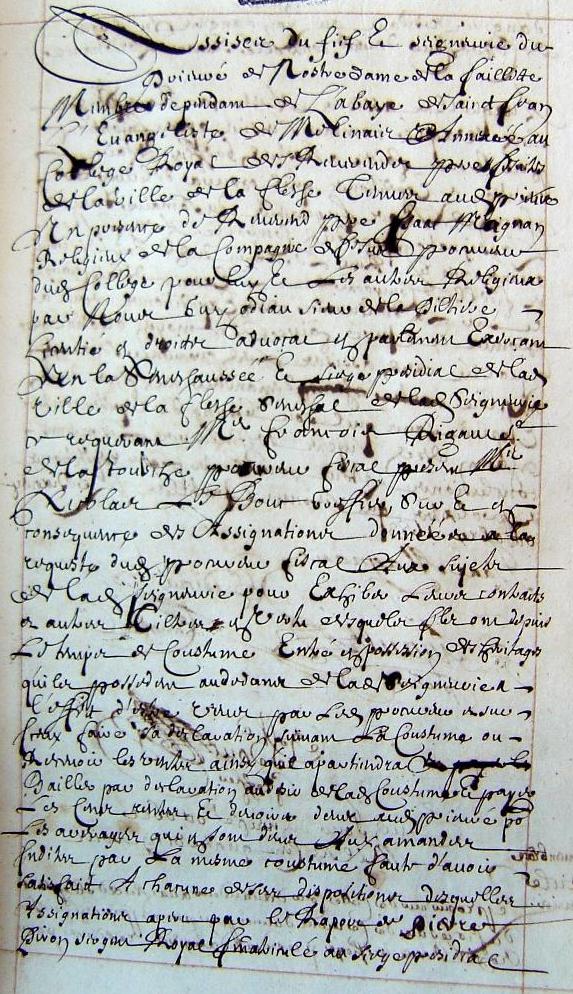 Assises du fief Et seigneurie du
Prieuré de Nostre dame de la faillotte
Membre dependant de L'abaye de Saint Jean
L'Euangeliste de Melinais Annexé au
College Royal des Reuerendes peres
de la ville de la flesse Tenues audit prieuré
En presence de Reuerend pere Isaac Maignan
Religieux de la Compagnie de Jesus procureur
dudit College pour luy Et Les autres Religieux
par Nous Guy sieur de la
Licentié es droitz aduocat en parlement Exerçant
En la Seneschaussée Et siege presidial de lad
ville de la flesse Seneschal de lad Seigneurie
ce requerant Me francois Rigault sr
de la Touche procureur fiscal presen Me
Nicolas Le Bouc Greffier Sur Et en
consequence des Assignations donnees a la
requeste dud procureur fiscal Aux sujets
de lad Seigneurie pour Exhiber Leurs contracts
et autres Tiltres en Vertu desquels Ils ont depuis
Le temps de Coustume Entré en possession des heritages
qu'ils possedent au dedans de lad Seigneurie a
l'effect d'estre par Led procureur
faire Sa declaration suiuant La Coustume ou
les ainsy qu'il apartiendra
Bailler par declaration au desir de lad Coustume Et payer
Les Cens rentes Et deuoirs deux aud prieuré
Les arrerages qui en sont deus Aux amandes
Indites par La mesme coustume faute d'auoir
satisfait A chacune de ses dispositions desquelles
Assignations apert par le Rapor de Pierre
Piron sergent Royal Imatriculé au siege presidial